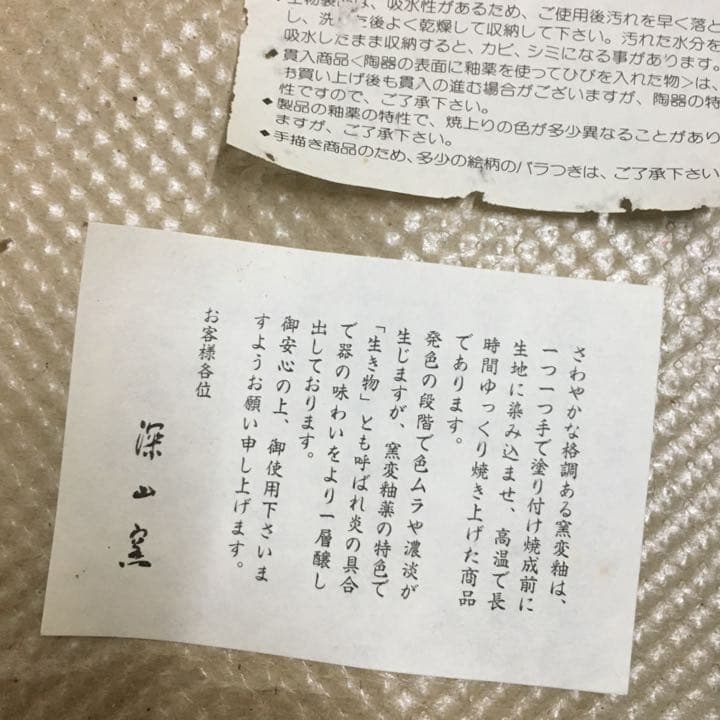 土物製品は、吸水性があるため、ご使用後汚れを早く落と
し、洗った後よく乾燥して収納して下さい。汚れた水分を
吸水したまま収納すると、カビ、シミになる事があります。
◆貫入商品<陶器の表面に釉薬を使ってひびを入れた物>は、
お買い上げ後も貫入の進む場合がございますが、陶器の特
性ですので、ご了承下さい。
◆製品の釉薬の特性で、焼上りの色が多少異なることがあり
ますが、ご了承下さい。
◆手描き商品のため、多少の絵柄のバラつきは、ご了承下さい
さわやかな格調ある窯変釉は、
一つ一つ手で塗り付け焼成前に
生地に染み込ませ、高温で長
時間ゆっくり焼き上げた商品
であります。
発色の段階で色ムラや濃淡が
生じますが、窯変釉薬の特色で
「生き物」とも呼ばれ炎の具合
で器の味わいをより一層醸し
出しております。
御安心の上、御使用下さいま
すようお願い申し上げます。
お客様各位
深山窯